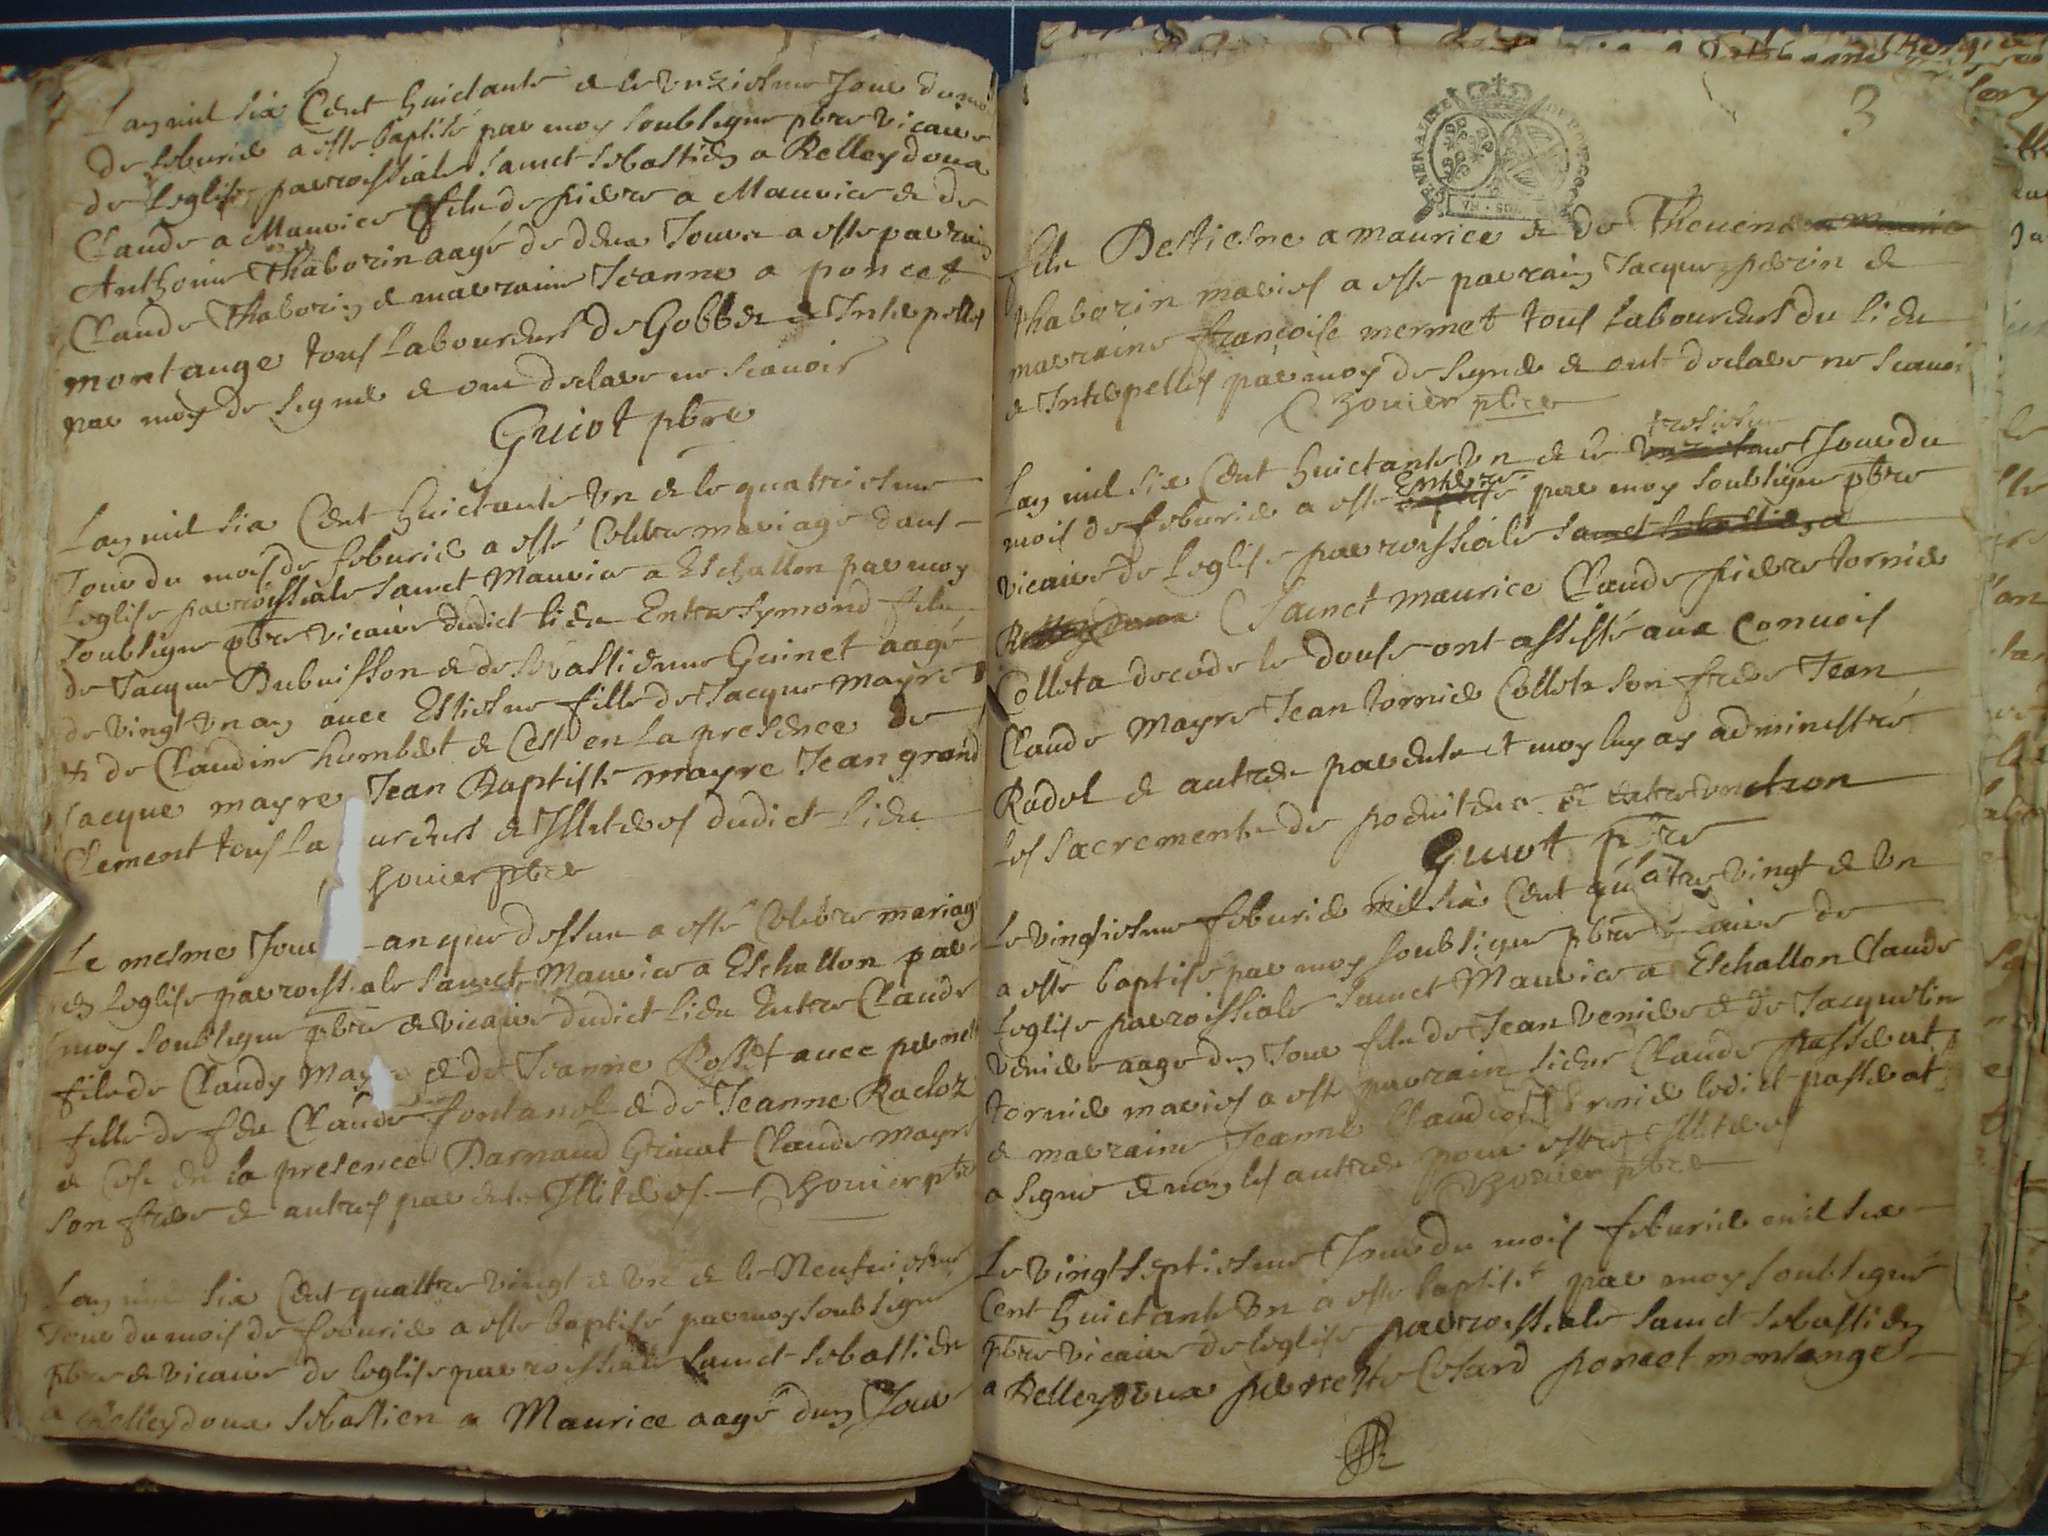 Lan mil six Cent huictante & le unziesme Jour du moi
de feburier a este baptisé par moy soubsigne pbre vicaire
de leglise parroissiale sainct sebastien a Belleydoux
Claude a Mauvice filz de pierre a Mauvice & de
Anthoine Thaborin aagé de deux Jours a este parrain
Claude Thaborin & marraine Jeanne a poncet
montange tous Laboureurs de Gobbet & Interpelles
par moy de signer & ont declare ne scavoir
Guiot pbre
Lan mil six Cent huictante un & le quattriesme
Jour du mois de feburier a esté Celebre mariage dans
leglise parroissiale sainct Mauvice a Eschallon par moy
soubsigne pbre vicaire dudict lieu Entre symond filz
de Jacque Dubuisson & de sebastienne Guinet aagé
de vingt un an avec Estiesne fille de Jacque mayre
& de Claudine humbert & Cest en la presence de
Jacque mayre Jean Baptiste mayre Jean grand
Clement tous la ureurs & Illiteres dudict lieu
houier pbre
Le mesme Jour an que dessus a esté Celebre mariage
en leglise parroissiale sainct Mauvice a Eschallon par
moy soubsigne pbre & vicaire dudict lieu Entre Claude
filz de Claudy May & de Jeanne Rosset avec pernet
fille de feu Claude fontanel & de Jeanne Racloz
& Cest en la presence Barnaud Grinat Claude mayre
son frere & autres parents Illiteres houier pbre
Lan mil six Cent quattre vingt & un & le Neufviesme
Jour du mois de feburier a este baptisé par moy soubsigne
pbre & vicaire de leglise parroissiale sainct sebastien
a Belleydoux sebastien a Maurice aagé dun Jour
3
filz Destiesne a maurice & de Thevene a maurice
thaborin maries a este parrain Jacque perrin &
marraine françoise mermet tous laboureurs du lieu
& Interpelles par moy de signer & ont declare ne scavoi
houier pbre
troisiesme
Lan mil six Cent huictante un & le unziesme Jour du
Enterre
mois de feburier a este baptise par moy soubsigne pbre
vicaire de leglise parroissiale sainct sebastien a
Belleydoux Sainct maurice Claude pierre tornier
Colleta decede le douse ont assisté aux Convois
Claude Mayre Jean tornier Collete son frere Jean
Radol & autres parents et moy luy ay administré
les sacrements de penitence & extre unction
Guiot pbre
Le vingtiesme feburier mil six Cent quatre vingt & un
a este baptise par moy soubsigne pbre vicaire de
leglise parroissiale sainct Mauvice a Eschallon Claude
venier aage dun Jour filz de Jean venier & de Jacqueline
tornier maries a este parrain sieur Claude passerat
& marraine Jeanne Claudie tornier ledict passerat
a signe & non les autres pour estre Illiteres
houier pbre
Le vingt septiesme Jour du mois feburier mil six
Cent huictante un a este baptisé par moy soubsigné
pbre vicaire de leglise parroissiale sainct sebastien
a Belleydoux pernette Cesard poncet montange